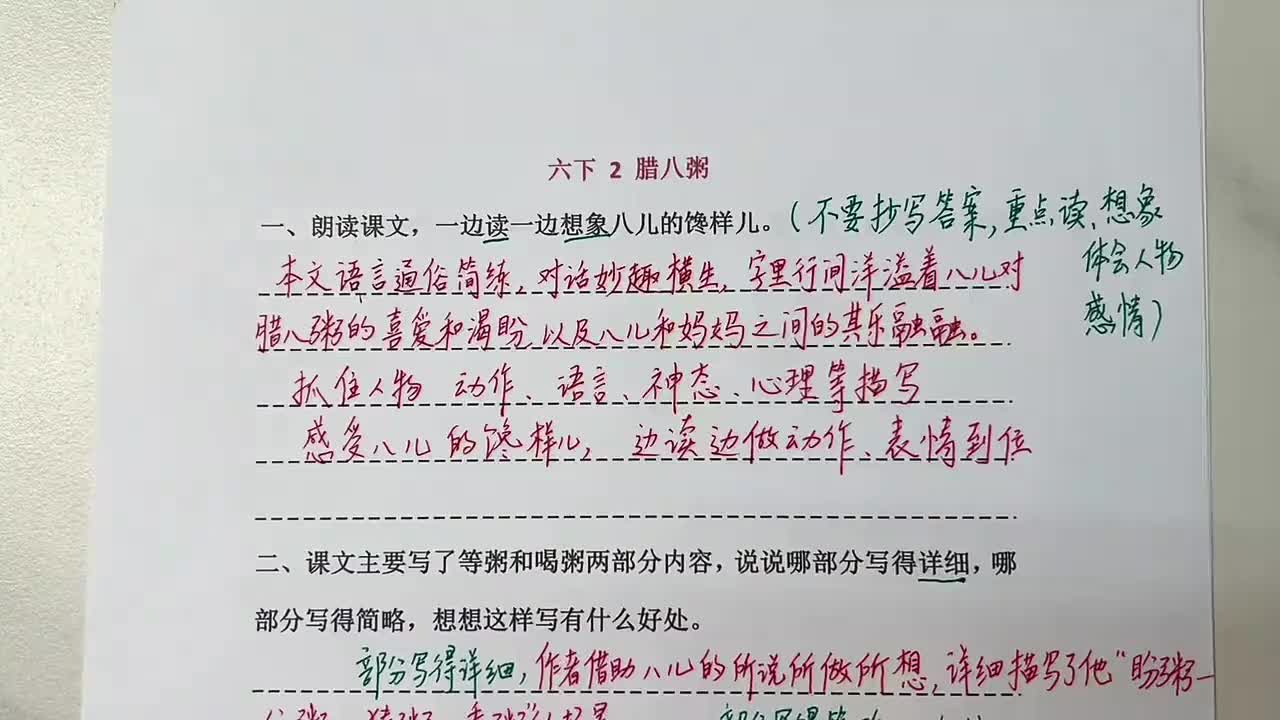 六下 2 腊八粥
一、朗读课文，一边读一边想象八儿的馋样儿。（不要抄写答案，重点读、想象
体会人物
感情）
本文语言通俗简练，对话妙趣横生，字里行间洋溢着八儿对
腊八粥的喜爱和渴盼以及八儿和妈妈之间的其乐融融。
抓住人物 动作、语言、神态、心理等描写
感受八儿的馋样儿，边读边做动作、表情到位
二、课文主要写了等粥和喝粥两部分内容，说说哪部分写得详细，哪
部分写得简略，想想这样写有什么好处。
部分写得详细，作者借助八儿的所说所做所想，详细描写了他“盼粥—